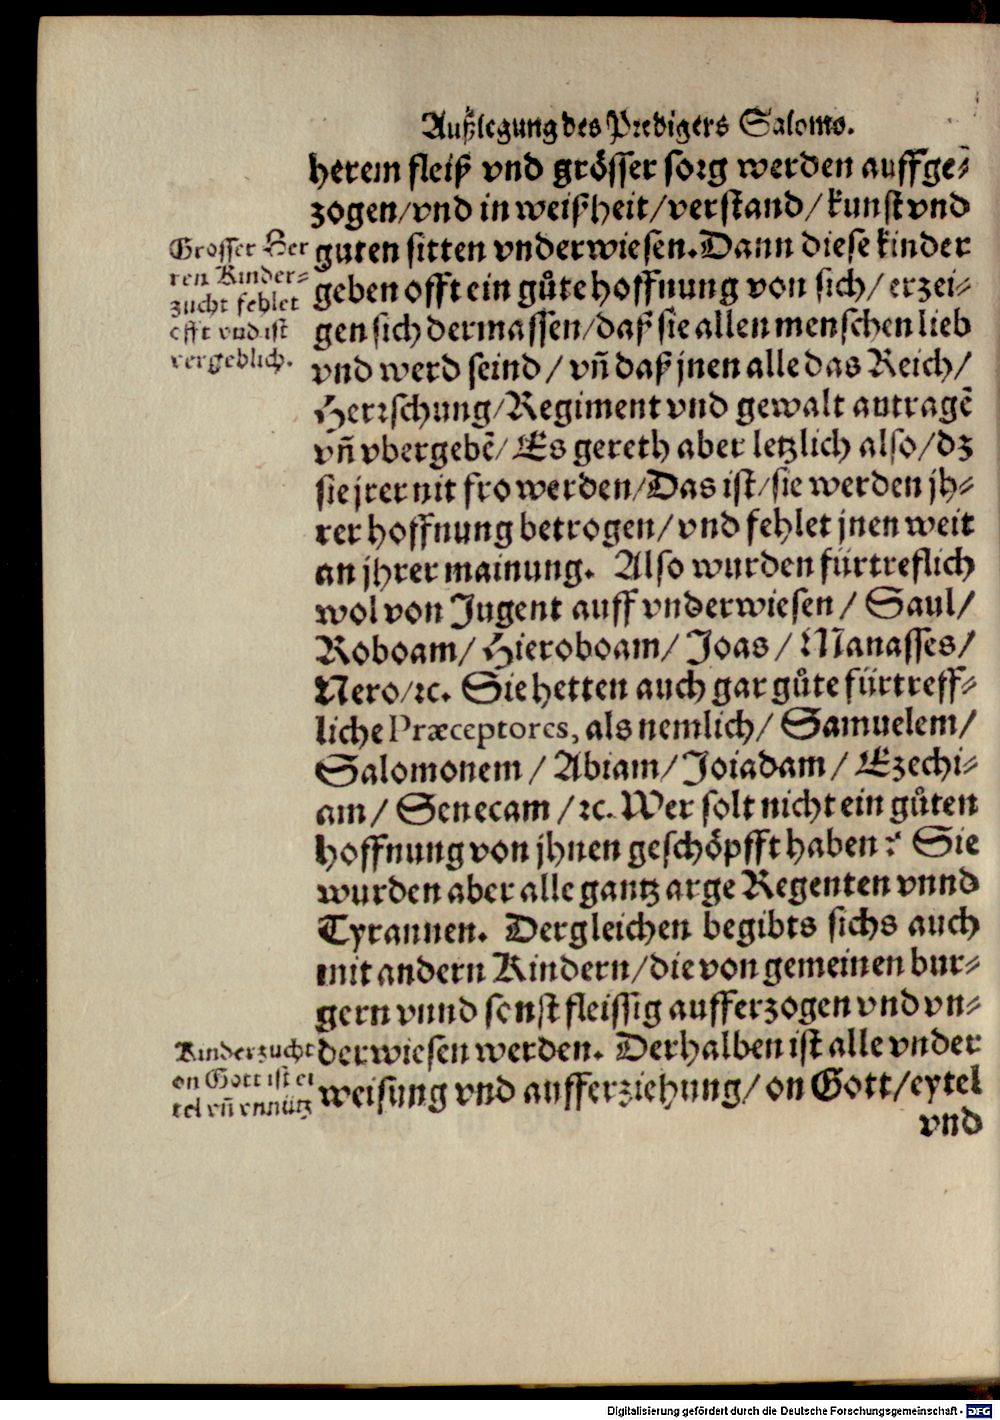 Außlegung des Predigers Salomo.
herem fleiß vnd grösser sorg werden auffge-
zogen/vnd in weißheit/verstand/kunst vnd
guten sitten vnderwiesen. Dann diese kinder
geben offt ein gůte hoffnung von sich/ erzei-
gen sich dermassen/daß sie allen menschen lieb
vnd werd seind/ vñ daß jnen alle das Reich/
Herrschung/Regiment vnd gewalt antragẽ
vñ vbergebẽ/ Es gereth aber letzlich also/dz
sie jrer nit fro werden/Das ist/sie werden jh-
rer hoffnung betrogen/ vnd fehlet jnen weit
an jhrer mainung. Also wurden fürtreflich
wol von Jugent auff vnderwiesen/ Saul/
Roboam/ Hieroboam/ Joas/ Manasses/
Nero/ꝛc. Sie hetten auch gar gůte fürtreff-
liche Præceptores, als nemlich/ Samuelem/
Salomonem/ Abiam/ Joiadam/ Ezechi-
am/ Senecam/ ꝛc. Wer solt nicht ein gůten
hoffnung von jhnen geschöpfft haben? Sie
wurden aber alle gantz arge Regenten vnnd
Tyrannen. Dergleichen begibts sichs auch
mit andern Kindern/die von gemeinen bur-
gern vnnd sonst fleissig aufferzogen vnd vn-
derwiesen werden. Derhalben ist alle vnder
weisung vnd aufferziehung/ on Gott/eytel
vnd
Grosser Her
ren Kinder-
zucht fehlet
offt vnd ist
vergeblich.
Kinderzucht
on Gott ist ei
tel vñ vnnütz
Digitalisierung gefördert durch die Deutsche Forschungsgemeinschaft - DFG